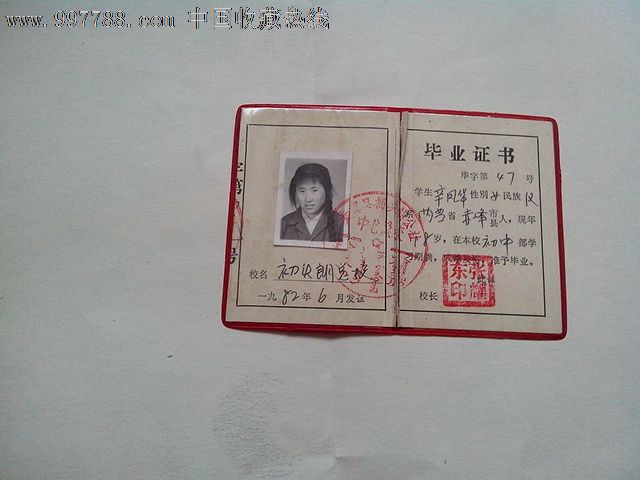 www.997788.com 中国收藏热线
毕业证书
毕字第 47 号
学生 辛凤华 性别 女 民族 汉
系 内蒙 省 赤峰 市县 人，现年
18 岁，在本校 初中 部学
习期满，准予毕业。
校长
张耀东印
校名
一九 82 年 6 月发证